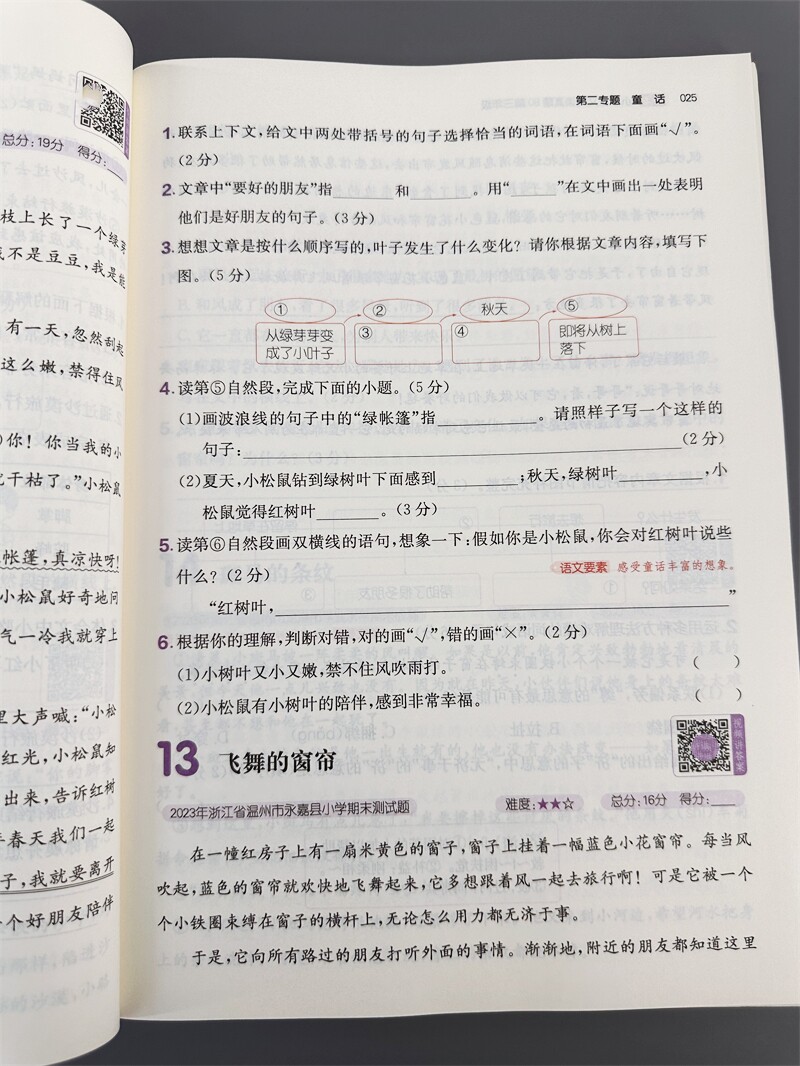 总分:19分 得分:
枝上长了一个绿芽
不是豆豆,我是能
有一天,忽然刮起
这么嫩,禁得住风
你!你当我的小
干枯了。”小松鼠
帐篷,真凉快呀!
小松鼠好奇地问
气一冷我就穿上
里大声喊:“小松
红光,小松鼠知
出来,告诉红树
春天我们一起
子,我就要离开
个好朋友陪伴
第二专题 童 话 025
1.联系上下文,给文中两处带括号的句子选择恰当的词语,在词语下面画“√”。
(2分)
2.文章中“要好的朋友”指________和________。用“______”在文中画出一处表明
他们是好朋友的句子。(3分)
3.想想文章是按什么顺序写的,叶子发生了什么变化?请你根据文章内容,填写下
图。(5分)
① ② 秋天 ⑤
从绿芽芽变成了小叶子 ③ ④ 即将从树上落下
4.读第⑤自然段,完成下面的小题。(5分)
(1)画波浪线的句子中的“绿帐篷”指____________。请照样子写一个这样的
句子:____________(2分)
(2)夏天,小松鼠钻到绿树叶下面感到__________;秋天,绿树叶__________,小
松鼠觉得红树叶________。(3分)
5.读第⑥自然段画双横线的语句,想象一下:假如你是小松鼠,你会对红树叶说些
什么?(2分) 语文要素 感受童话丰富的想象。
“红树叶,____________”
6.根据你的理解,判断对错,对的画“√”,错的画“×”。(2分)
(1)小树叶又小又嫩,禁不住风吹雨打。 ( )
(2)小松鼠有小树叶的陪伴,感到非常幸福。 ( )
13 飞舞的窗帘
视频讲答案
2023年浙江省温州市永嘉县小学期末测试题 难度:★★☆ 总分:16分 得分:____
在一幢红房子上有一扇米黄色的窗子,窗子上挂着一幅蓝色小花窗帘。每当风
吹起,蓝色的窗帘就欢快地飞舞起来,它多想跟着风一起去旅行啊!可是它被一个
个小铁圈束缚在窗子的横杆上,无论怎么用力都无济于事。
于是,它向所有路过的朋友打听外面的事情。渐渐地,附近的朋友都知道这里